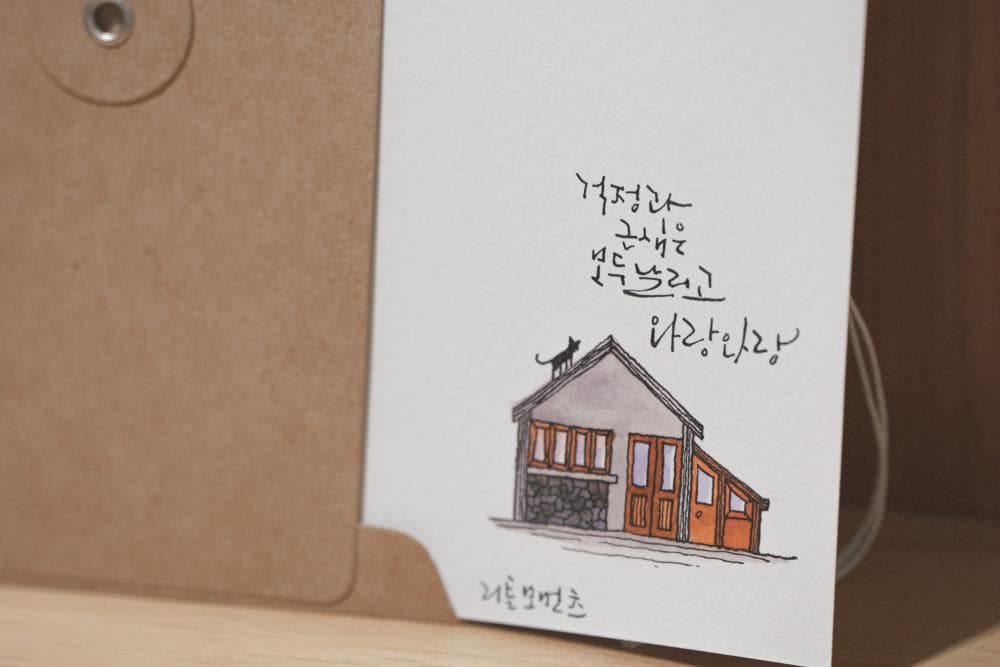 걱정과
근심은
모두 날리고
와랑와랑
리틀모먼츠